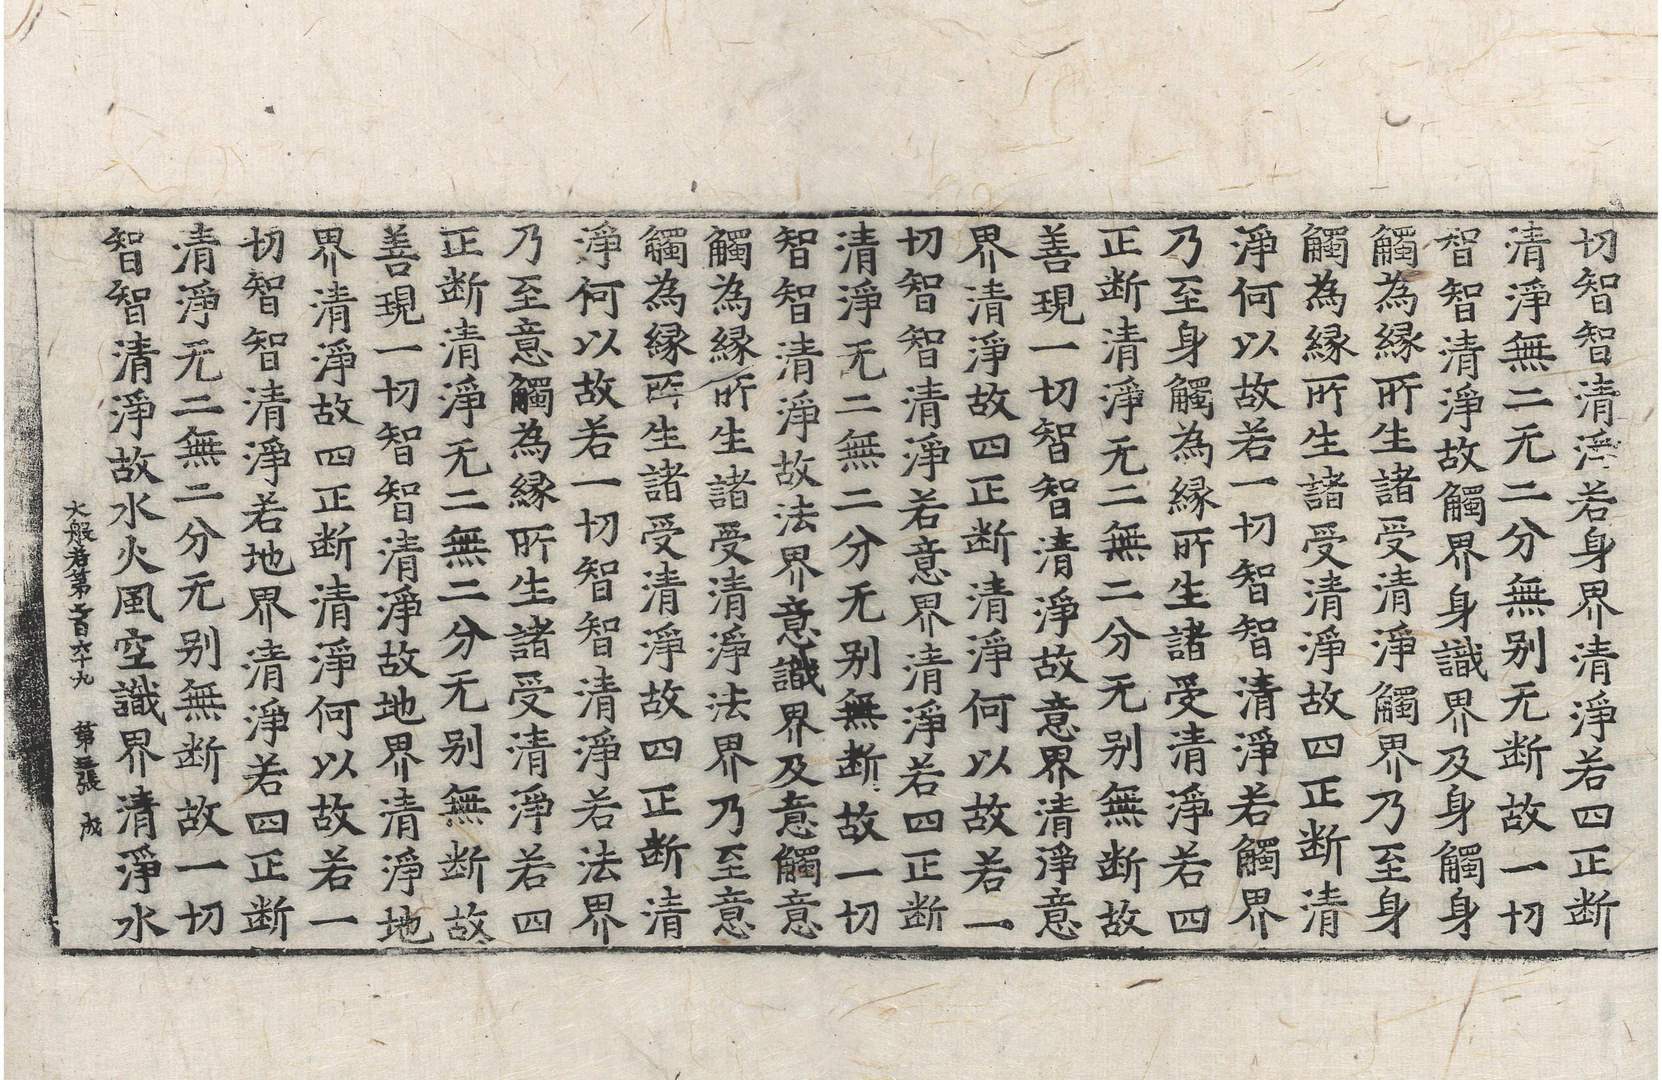 切智智清淨若身界清淨若四正断
清淨無二无二分無别无断故一切
智智清淨故觸界身識界及身觸身
觸為縁所生諸受清淨觸界乃至身
觸為縁所生諸受清淨故四正断清
淨何以故若一切智智清淨若觸界
乃至身觸為縁所生諸受清淨若四
正断清淨无二無二分无别無断故
善現一切智智清淨故意界清淨意
界清淨故四正断清淨何以故若一
切智智清淨若意界清淨若四正断
清淨无二無二分无别無断故一切
智智清淨故法界意識界及意觸意
觸為縁所生諸受清淨法界乃至意
觸為縁所生諸受清淨故四正断清
淨何以故若一切智智清淨若法界
乃至意觸為縁所生諸受清淨若四
正断清淨无二無二分无别無断故
善現一切智智清淨故地界清淨地
界清淨故四正断清淨何以故若一
切智智清淨若地界清淨若四正断
清淨无二無二分无别無断故一切
智智清淨故水火風空識界清淨水
大般若第二百六十九 第五張 成